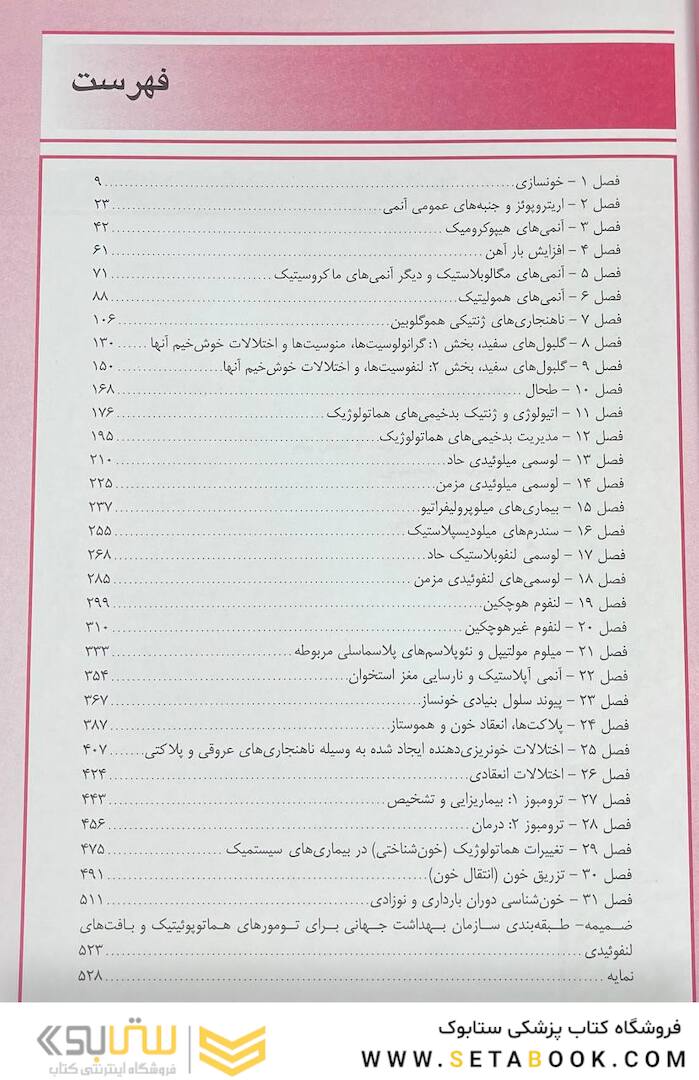 فهرست
فصل ۱ – خونسازی ۹
فصل ۲ – اریتروپوئز و جنبه‌های عمومی آنمی ۲۳
فصل ۳ – آنمی‌های هیپوکرومیک ۴۲
فصل ۴ – افزایش بار آهن ۶۱
فصل ۵ – آنمی‌های مگالوبلاستیک و دیگر آنمی‌های ماکروسیتیک ۷۱
فصل ۶ – آنمی‌های همولیتیک ۸۸
فصل ۷ – ناهنجاری‌های ژنتیکی هموگلوبین ۱۰۶
فصل ۸ – گلبول‌های سفید، بخش ۱: گرانولوسیت‌ها، منوسیت‌ها و اختلالات خوش‌خیم آنها ۱۳۰
فصل ۹ – گلبول‌های سفید، بخش ۲: لنفوسیت‌ها، و اختلالات خوش‌خیم آنها ۱۵۰
فصل ۱۰ – طحال ۱۶۸
فصل ۱۱ – اتیولوژی و ژنتیک بدخیمی‌های هماتولوژیک ۱۷۶
فصل ۱۲ – مدیریت بدخیمی‌های هماتولوژیک ۱۹۵
فصل ۱۳ – لوسمی میلوئیدی حاد ۲۱۰
فصل ۱۴ – لوسمی میلوئیدی مزمن ۲۲۵
فصل ۱۵ – بیماری‌های میلوپرولیفراتیو ۲۳۷
فصل ۱۶ – سندرم‌های میلودیسپلاستیک ۲۵۵
فصل ۱۷ – لوسمی لنفوبلاستیک حاد ۲۶۸
فصل ۱۸ – لوسمی‌های لنفوئیدی مزمن ۲۸۵
فصل ۱۹ – لنفوم هوچکین ۲۹۹
فصل ۲۰ – لنفوم غیرهوچکین ۳۱۰
فصل ۲۱ – میلوم مولتیپل و نئوپلاسم‌های پلاسماسلی مربوطه ۳۳۳
فصل ۲۲ – آنمی آپلاستیک و نارسایی مغز استخوان ۳۵۴
فصل ۲۳ – پیوند سلول بنیادی خونساز ۳۶۷
فصل ۲۴ – پلاکت‌ها، انعقاد خون و هموستاز ۳۸۷
فصل ۲۵ – اختلالات خونریزی‌دهنده ایجاد شده به وسیله ناهنجاری‌های عروقی و پلاکتی ۴۰۷
فصل ۲۶ – اختلالات انعقادی ۴۲۴
فصل ۲۷ – ترومبوز ۱: بیماریزایی و تشخیص ۴۴۳
فصل ۲۸ – ترومبوز ۲: درمان ۴۵۶
فصل ۲۹ – تغییرات هماتولوژیک (خون‌شناختی) در بیماری‌های سیستمیک ۴۷۵
فصل ۳۰ – تزریق خون (انتقال خون) ۴۹۱
فصل ۳۱ – خون‌شناسی دوران بارداری و نوزادی ۵۱۱
ضمیمه– طبقه‌بندی سازمان بهداشت جهانی برای تومورهای هماتوپوئیتیک و بافت‌های
لنفوئیدی ۵۲۳
نمایه ۵۲۸
فروشگاه کتاب پزشکی ستابوک
WWW.SETABOOK.COM
ستابوک
فروشگاه اینترنتی کتاب